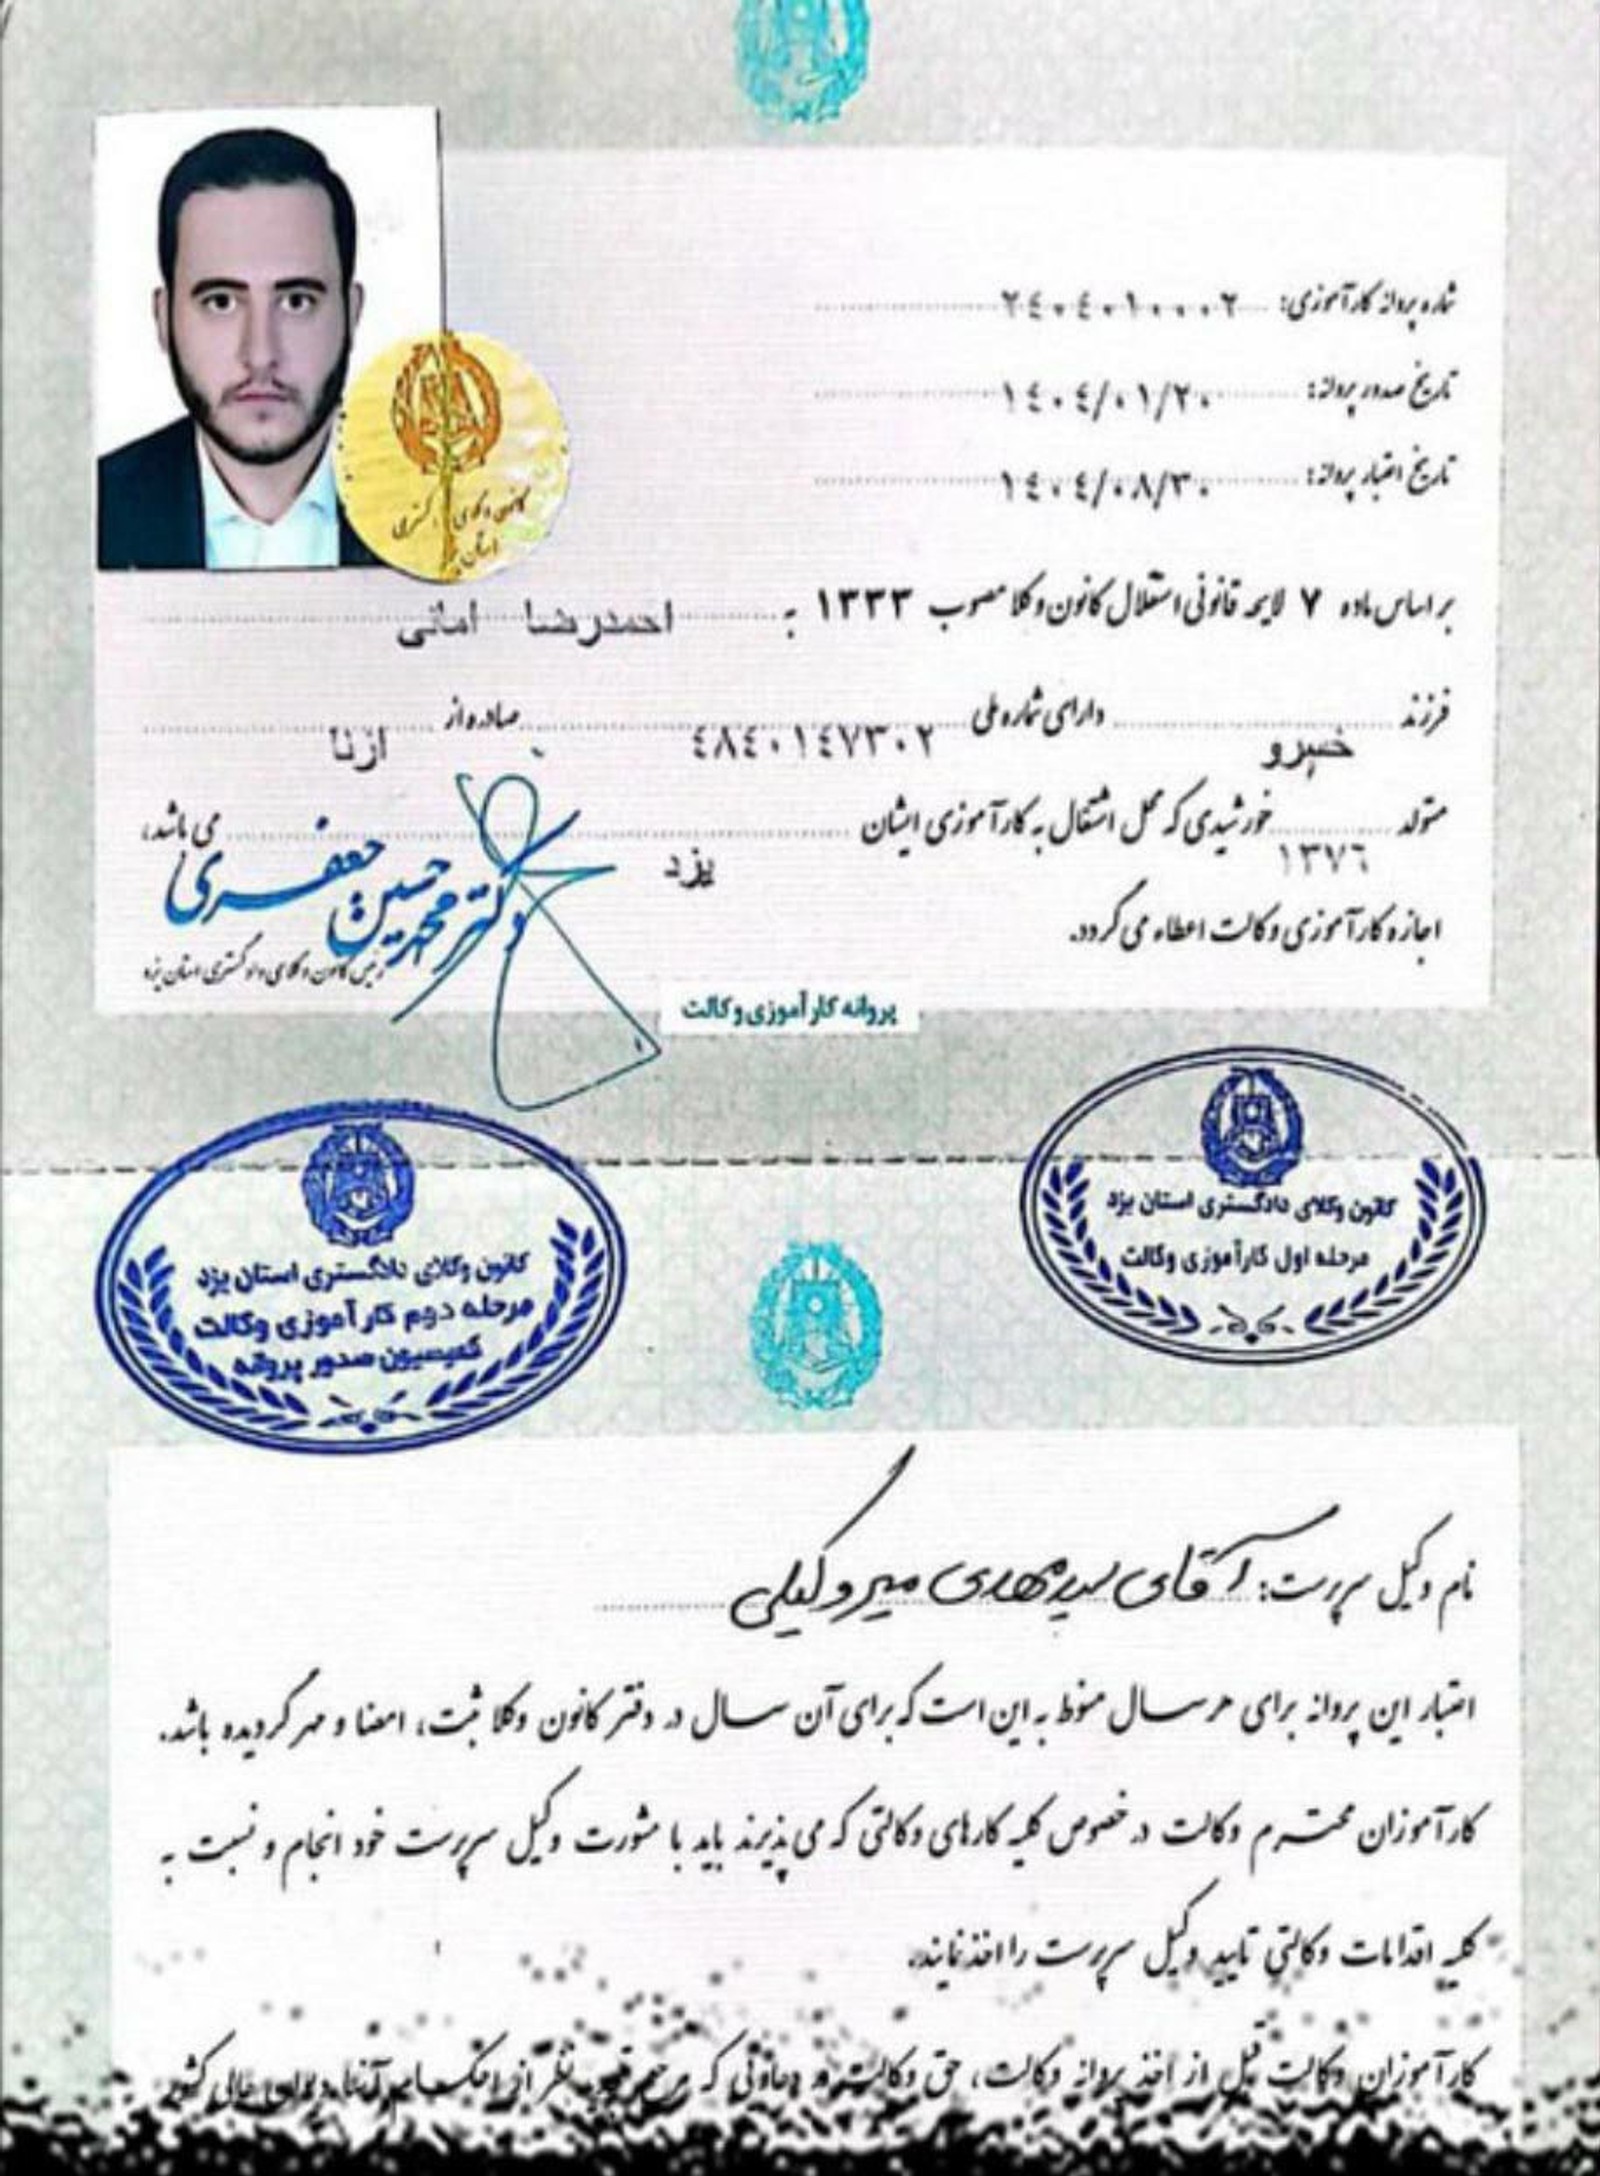 شماره پروانه کارآموزی: ۲٤۰٤۰۱۰۰۰۲
تاریخ صدور پروانه: ۱٤۰٤/۰۱/۲۰
تاریخ اعتبار پروانه: ۱٤۰٤/۰۸/۳۰
بر اساس ماده ۷ لایحه قانونی استقلال کانون وکلا مصوب ۱۳۳۳ به احمدرضا امانی
فرزند خسرو دارای شماره ملی ٤۸٤۰۱٤۷۳۰۲ صادره از ازنا
متولد ۱۳۷٦ خورشیدی که محل اشتغال به کارآموزی ایشان یزد می باشد،
اجازه کارآموزی وکالت اعطاء می گردد.
دکتر محمدحسین جعفری
رئیس کانون وکلای دادگستری استان یزد
پروانه کارآموزی وکالت
کانون وکلای دادگستری استان یزد
مرحله اول کارآموزی وکالت
کانون وکلای دادگستری استان یزد
مرحله دوم کارآموزی وکالت
کمیسیون صدور پروانه
نام وکیل سرپرست: آقای سیدمهدی میروکیلی
اعتبار این پروانه برای هر سال منوط به این است که برای آن سال در دفتر کانون وکلا ثبت، امضا و مهر گردیده باشد.
کارآموزان محترم وکالت در خصوص کلیه کارهای وکالتی که می پذیرند باید با مشورت وکیل سرپرست خود انجام و نسبت به
کلیه اقدامات وکالتی تایید وکیل سرپرست را اخذ نمایند.
کارآموزان وکالت قبل از اخذ پروانه وکالت، حق وکالت در دعاوی که مرجع تجدید نظر از احکام آنها دیوان عالی کشور